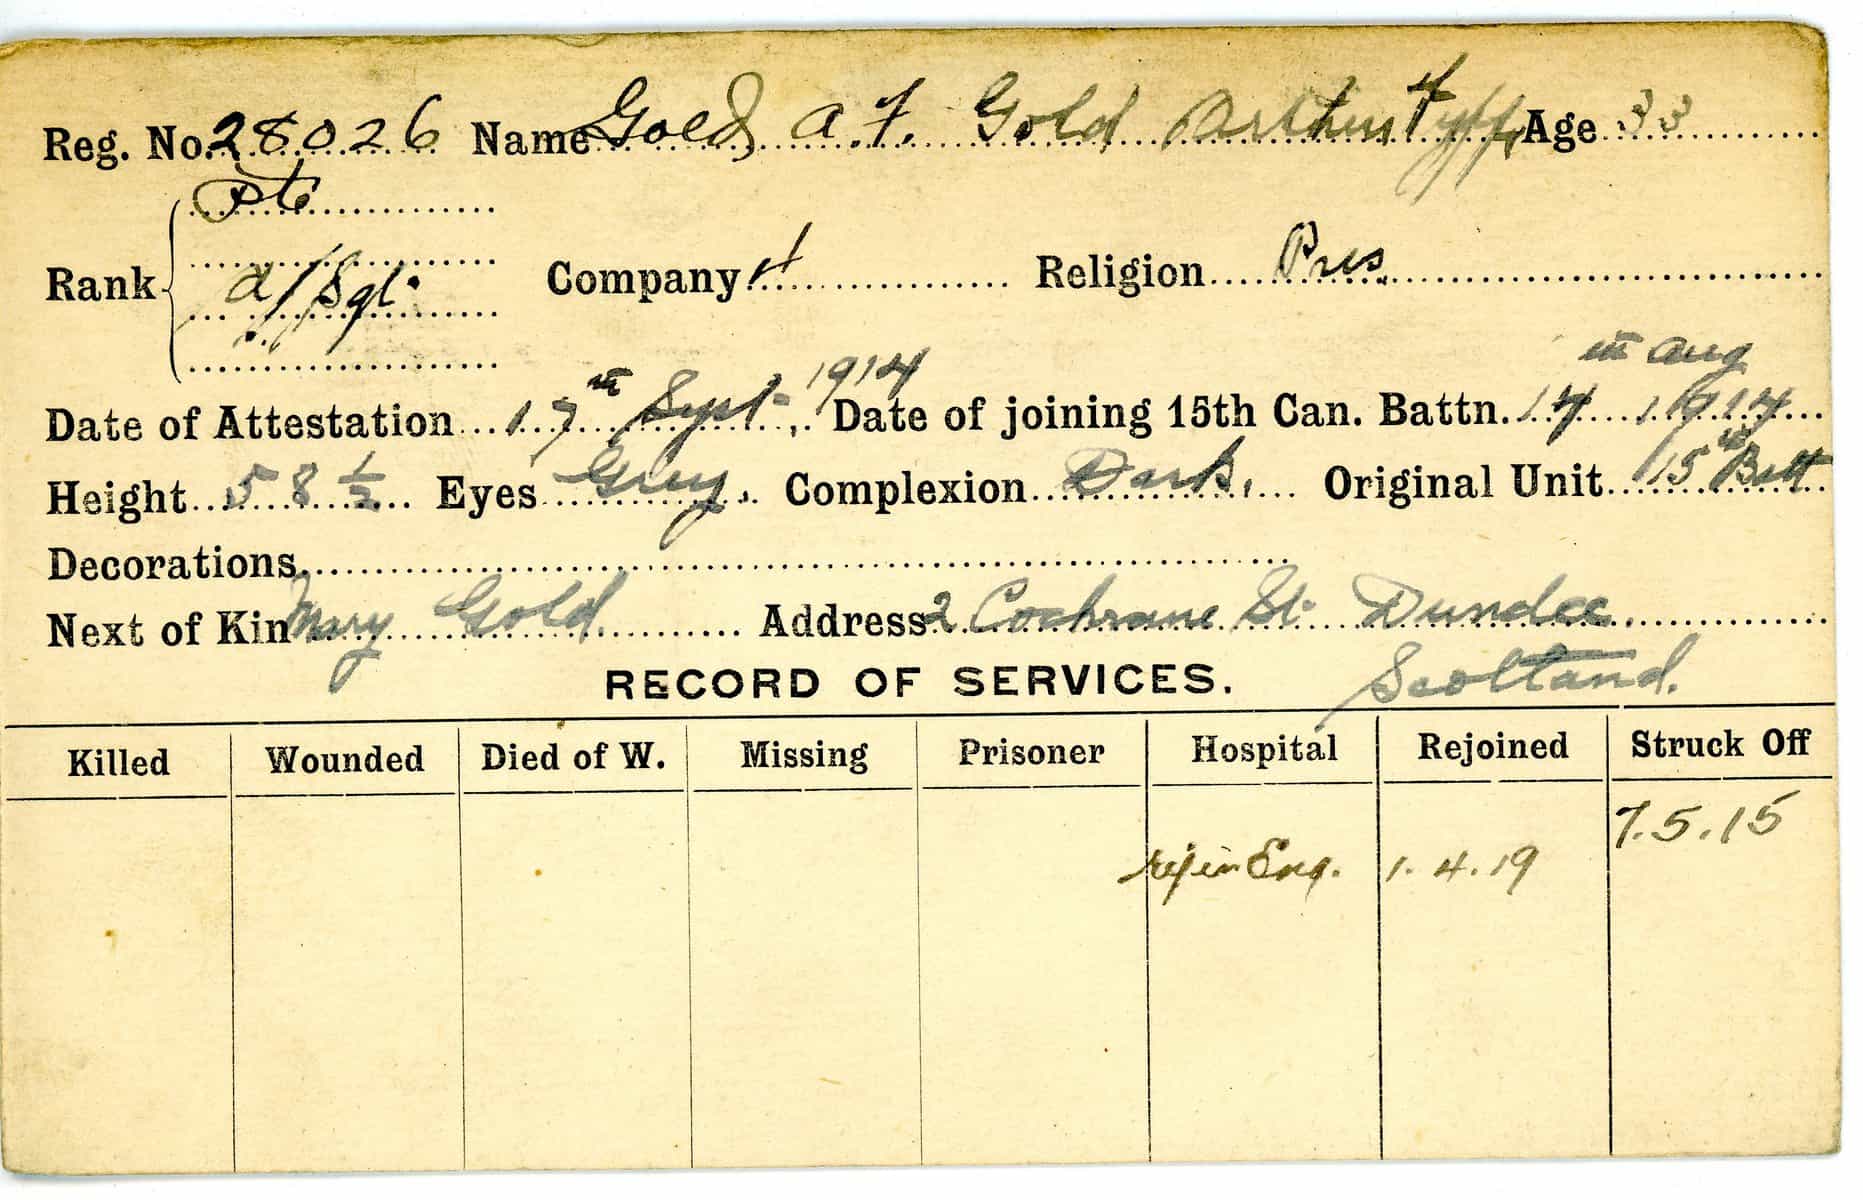 Reg. No. 28026 Name Gold, A. F. Gold Arthur Fyffe Age 33
Pte
Rank a/Sgt. Company 4 Religion Pres
Date of Attestation 17th Sept. 1914 Date of joining 15th Can. Battn. 14th Aug 1914
Height 5 8 ½ Eyes Grey. Complexion Dark. Original Unit 15th Batt
Decorations
Next of Kin Mary Gold Address 2 Cochrane St. Dundee
Scotland.
RECORD OF SERVICES.
Killed Wounded Died of W. Missing Prisoner Hospital Rejoined Struck Off
7.5.15
rej in Eng. 1.4.19